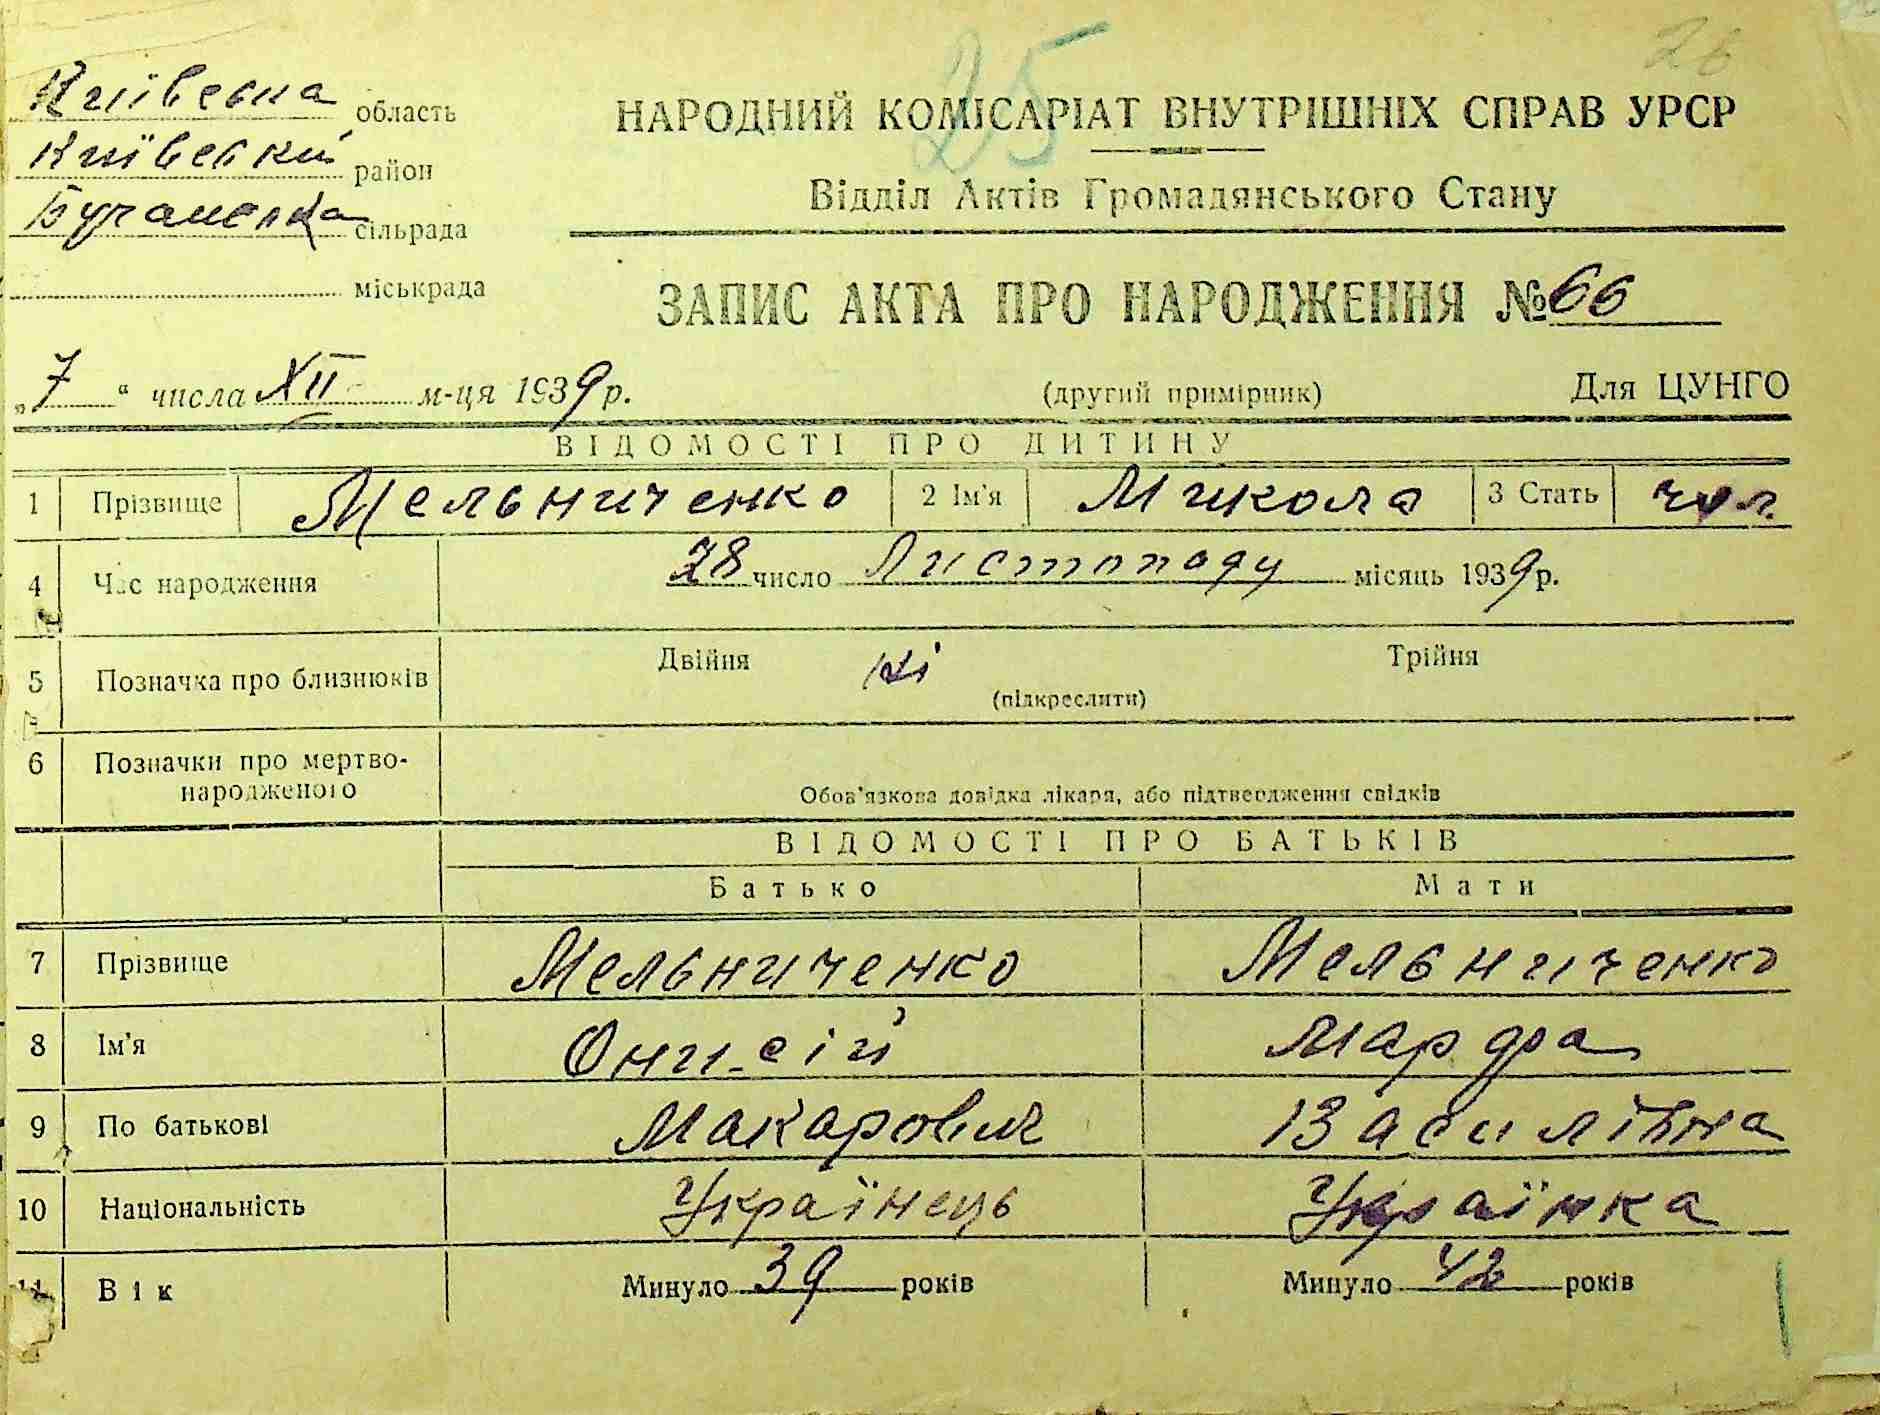 25
26
Київська область
Київський район
Бучанська сільрада
міськрада
НАРОДНИЙ КОМІСАРІАТ ВНУТРІШНІХ СПРАВ УРСР
Відділ Актів Громадянського Стану
ЗАПИС АКТА ПРО НАРОДЖЕННЯ № 66
„7“ числа XII м-ця 1939 р. (другий примірник) Для ЦУНГО
ВІДОМОСТІ ПРО ДИТИНУ
1 Прізвище Мельниченко 2 Ім'я Микола 3 Стать чол.
4 Час народження 28 число Листопаду місяць 1939 р.
5 Позначка про близнюків Двійня ні Трійня
(підкреслити)
6 Позначки про мертво-
народженого
Обов'язкова довідка лікаря, або підтвердження свідків
ВІДОМОСТІ ПРО БАТЬКІВ
Батько Мати
7 Прізвище Мельниченко Мельниченко
8 Ім'я Онисій Марфа
9 По батькові Макарович Василівна
10 Національність Українець Українка
11 Вік Минуло 39 років Минуло 42 років